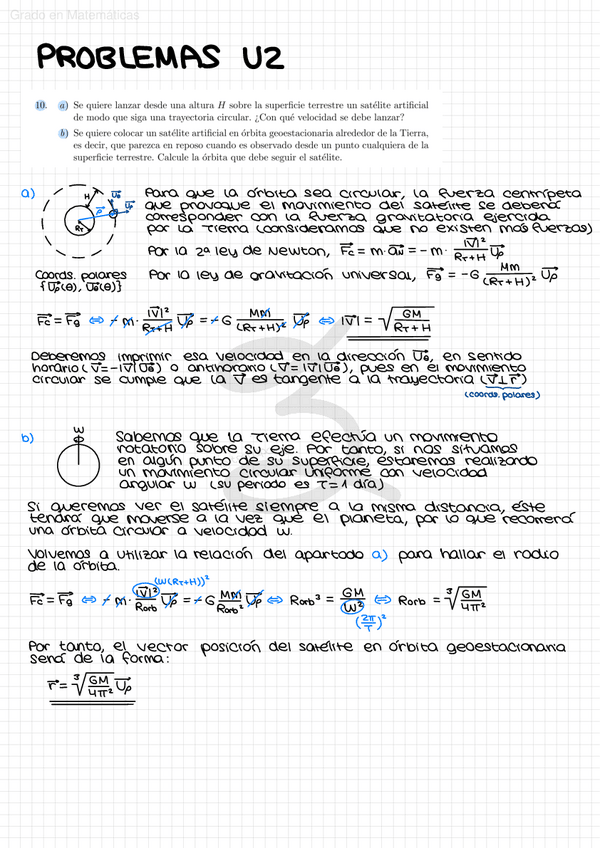 Grado en Matemáticas
PROBLEMAS U2
10. a) Se quiere lanzar desde una altura H sobre la superficie terrestre un satélite artificial
de modo que siga una trayectoria circular. ¿Con qué velocidad se debe lanzar?
b) Se quiere colocar un satélite artificial en órbita geoestacionaria alrededor de la Tierra,
es decir, que parezca en reposo cuando es observado desde un punto cualquiera de la
superficie terrestre. Calcule la órbita que debe seguir el satélite.
a)
H
R_T
Coords. polares
{U⃗ρ(θ), U⃗θ(θ)}
Para que la órbita sea circular, la fuerza centrípeta
que provoque el movimiento del satélite se deberá
corresponder con la fuerza gravitatoria ejercida
por la Tierra (consideramos que no existen más fuerzas)
Por la 2ª ley de Newton, F⃗c = m·a⃗N = -m· |V⃗|²/(R_T+H) U⃗ρ
Por la ley de gravitación universal, F⃗g = -G Mm/(R_T+H)² U⃗ρ
F⃗c = F⃗g ⇔ -m· |V⃗|²/(R_T+H) U⃗ρ = -G Mm/(R_T+H)² U⃗ρ ⇔ |V⃗| = √(GM/(R_T+H))
Deberemos imprimir esa velocidad en la dirección U⃗θ, en sentido
horario (V⃗=-|V⃗|U⃗θ) o antihorario (V⃗=|V⃗|U⃗θ), pues en el movimiento
circular se cumple que la V⃗ es tangente a la trayectoria (V⃗⊥r⃗)
(coords. polares)
b)
ω
Sabemos que la Tierra efectúa un movimiento
rotatorio sobre su eje. Por tanto, si nos situamos
en algún punto de su superficie, estaremos realizando
un movimiento circular uniforme con velocidad
angular ω (su periodo es T=1 día)
Si queremos ver el satélite siempre a la misma distancia, éste
tendrá que moverse a la vez que el planeta, por lo que recorrerá
una órbita circular a velocidad ω.
Volvemos a utilizar la relación del apartado a) para hallar el radio
de la órbita.
(ω(R_T+H))²
F⃗c = F⃗g ⇔ -m· |V⃗|²/Rorb U⃗ρ = -G Mm/Rorb² U⃗ρ ⇔ Rorb³ = GM/ω² ⇔ Rorb = ³√(GM/4π²)
(2π/T)²
Por tanto, el vector posición del satélite en órbita geoestacionaria
será de la forma:
r⃗ = ³√(GM/4π²) U⃗ρ